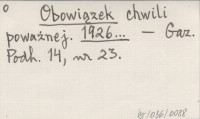 Obowiązek chwili
poważnej. 1926... — Gaz.
Podh. 14, nr 23.